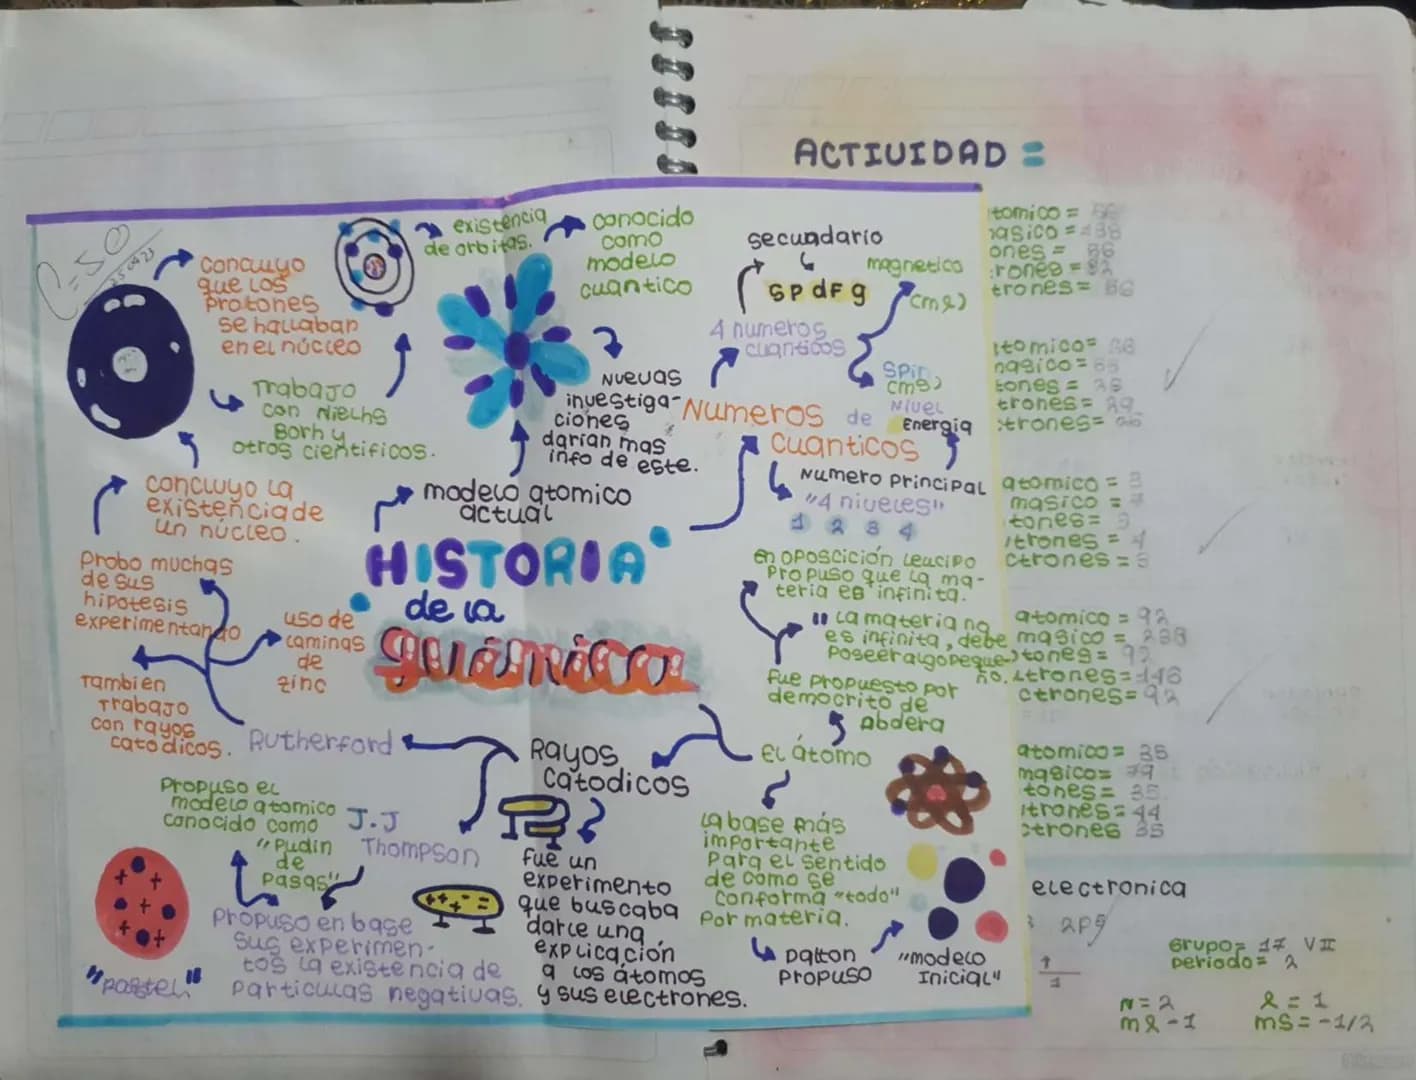 ACTIVIDAD =
existencia
de orbitas.
conocido
como
modelo
cuantico
concluyo
que los
protones
se hallaban
en el núcleo
Trabajo
con Nielhs
Borh y
otros científicos.
concluyo la
existencia de
un núcleo.
Probo muchas
de sus
hipotesis
experimentando
uso de
laminas
de
zinc
Tambien
Trabajo
con rayos
catodicos.
Rutherford
Nuevas
investiga-
ciones
darían mas
info de este.
modelo atomico
actual
HISTORIA
de la
química
secundario
SPdFg
magnetico
(ml)
4 numeros
cuanticos
Spin
(ms)
Numeros de
cuanticos
Nivel
Energia
Numero Principal
"4 niveles"
1 2 3 4
en oposcición Leucipo
Propuso que la ma-
teria es infinita.
"La materia no
es infinita, debe
poseer algo peque-
no.
fue propuesto por
democrito de
Abdera
El átomo
La base más
importante
para el sentido
de como se
conforma "todo"
Por materia.
Dalton
Propuso
"modelo
Inicial"
Rayos
Catodicos
fue un
experimento
que buscaba
darle una
explicación
a los átomos
y sus electrones.
J.J
Thompson
Propuso el
modelo atomico
conocido como
"Pudin
de
Pasas"
Propuso en base
sus experimen-
tos la existencia de
particulas negativas.
"Pastel"
tomico =
masico =
ones =
rones =
trones =
tomico=
masico =
tones =
trones =
ctrones=
atomico = 3
masico =
tones=
trones = 4
ctrones = 3
atomico = 92
masico = 238
tones = 92
trones=146
ctrones= 92
atomico = 35
masico= 79
tones= 35
trones= 44
ctrones 35
electronica
2p5
Grupo= 17 VII
Periodo= 2
N= 2
l = 1
ml -1
ms= -1/2